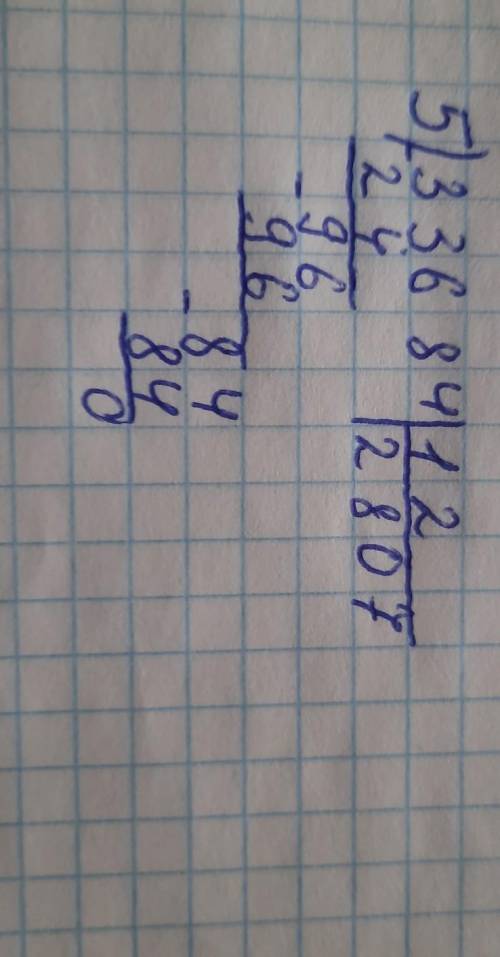 5) 33684 | 12
24 | 2807
- 96
96
- 84
84
0